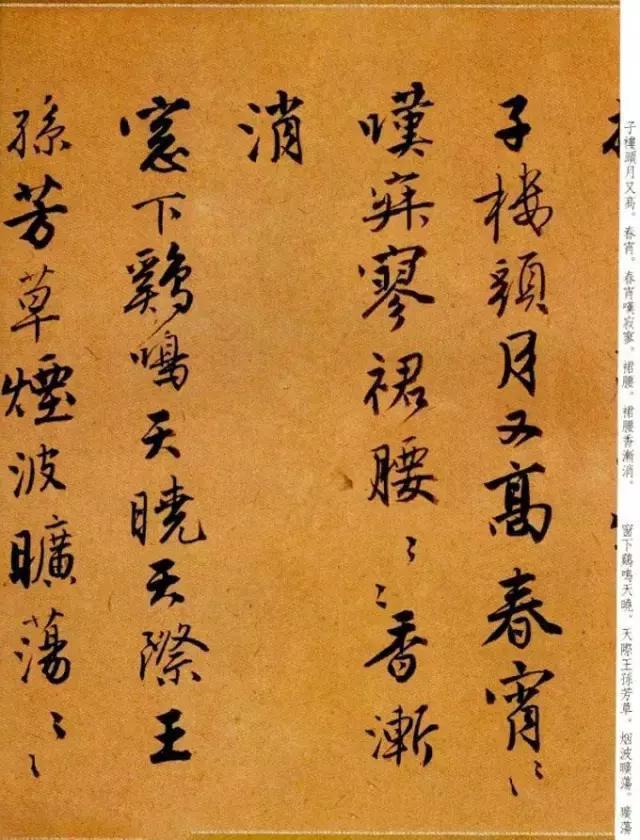 子樓頭月又高。春宵。春宵嘆寂寥。裙腰。裙腰香漸消。
窗下鷄鳴天曉。天際王孫芳草。烟波曠蕩。曠蕩
子樓頭月又高春宵〻〻
嘆寂寥裙腰〻〻香漸
消
窓下鷄鳴天曉天際王
孫芳草煙波曠蕩〻〻